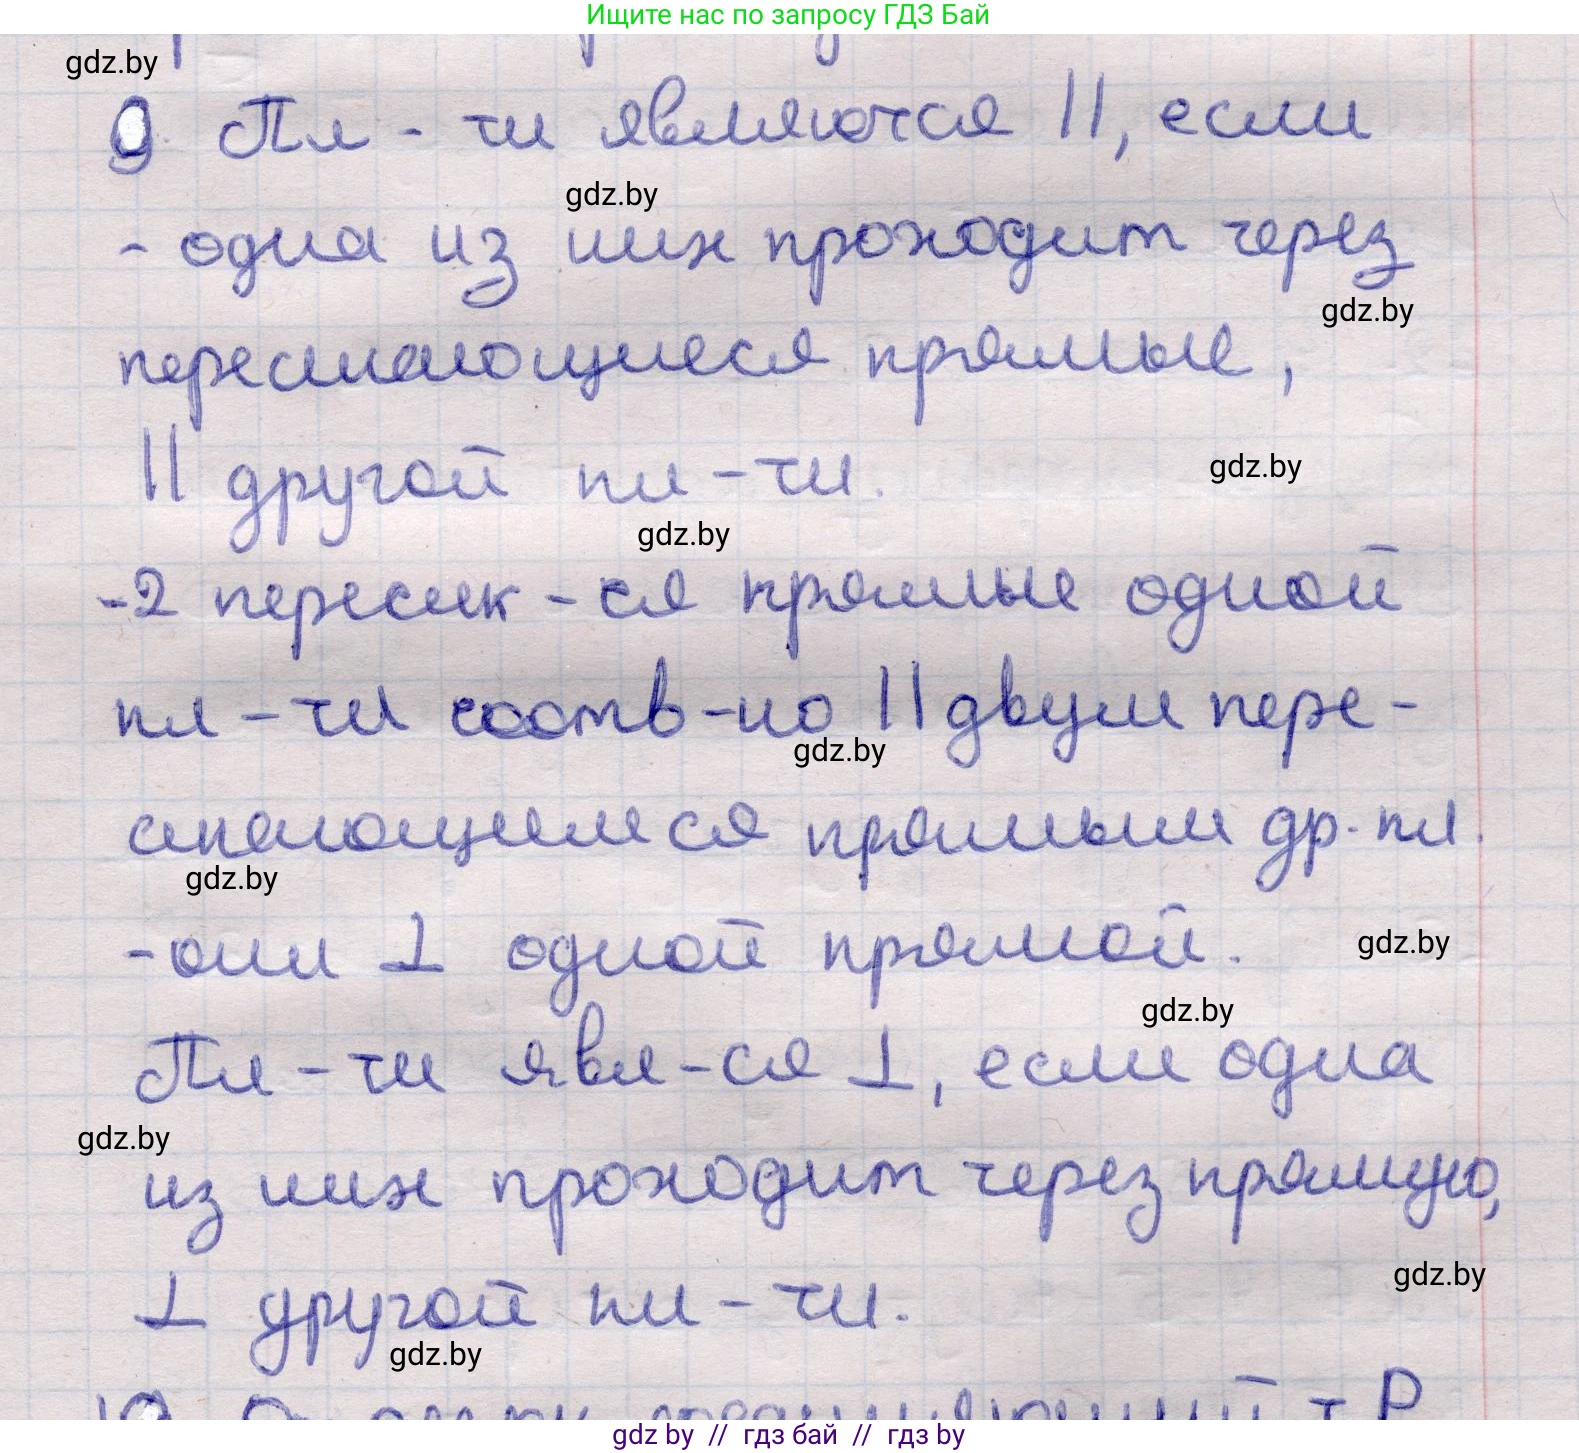 Ищите нас по запросу ГДЗ Бай
gdz.by
9. Пл-ти являются ||, если
gdz.by
- одна из них проходит через
gdz.by
пересекающиеся прямые,
|| другой пл-ти.
gdz.by
gdz.by
-2 пересек-ся прямые одной
пл-ти соотв-но || двум пере-
gdz.by
секающимся прямым др. пл.
gdz.by
-они ⊥ одной прямой.
gdz.by
gdz.by
Пл-ти явл-ся ⊥, если одна
gdz.by
из них проходит через прямую,
gdz.by
⊥ другой пл-ти.
gdz.by
10
gdz by // гдз бай // гдз by